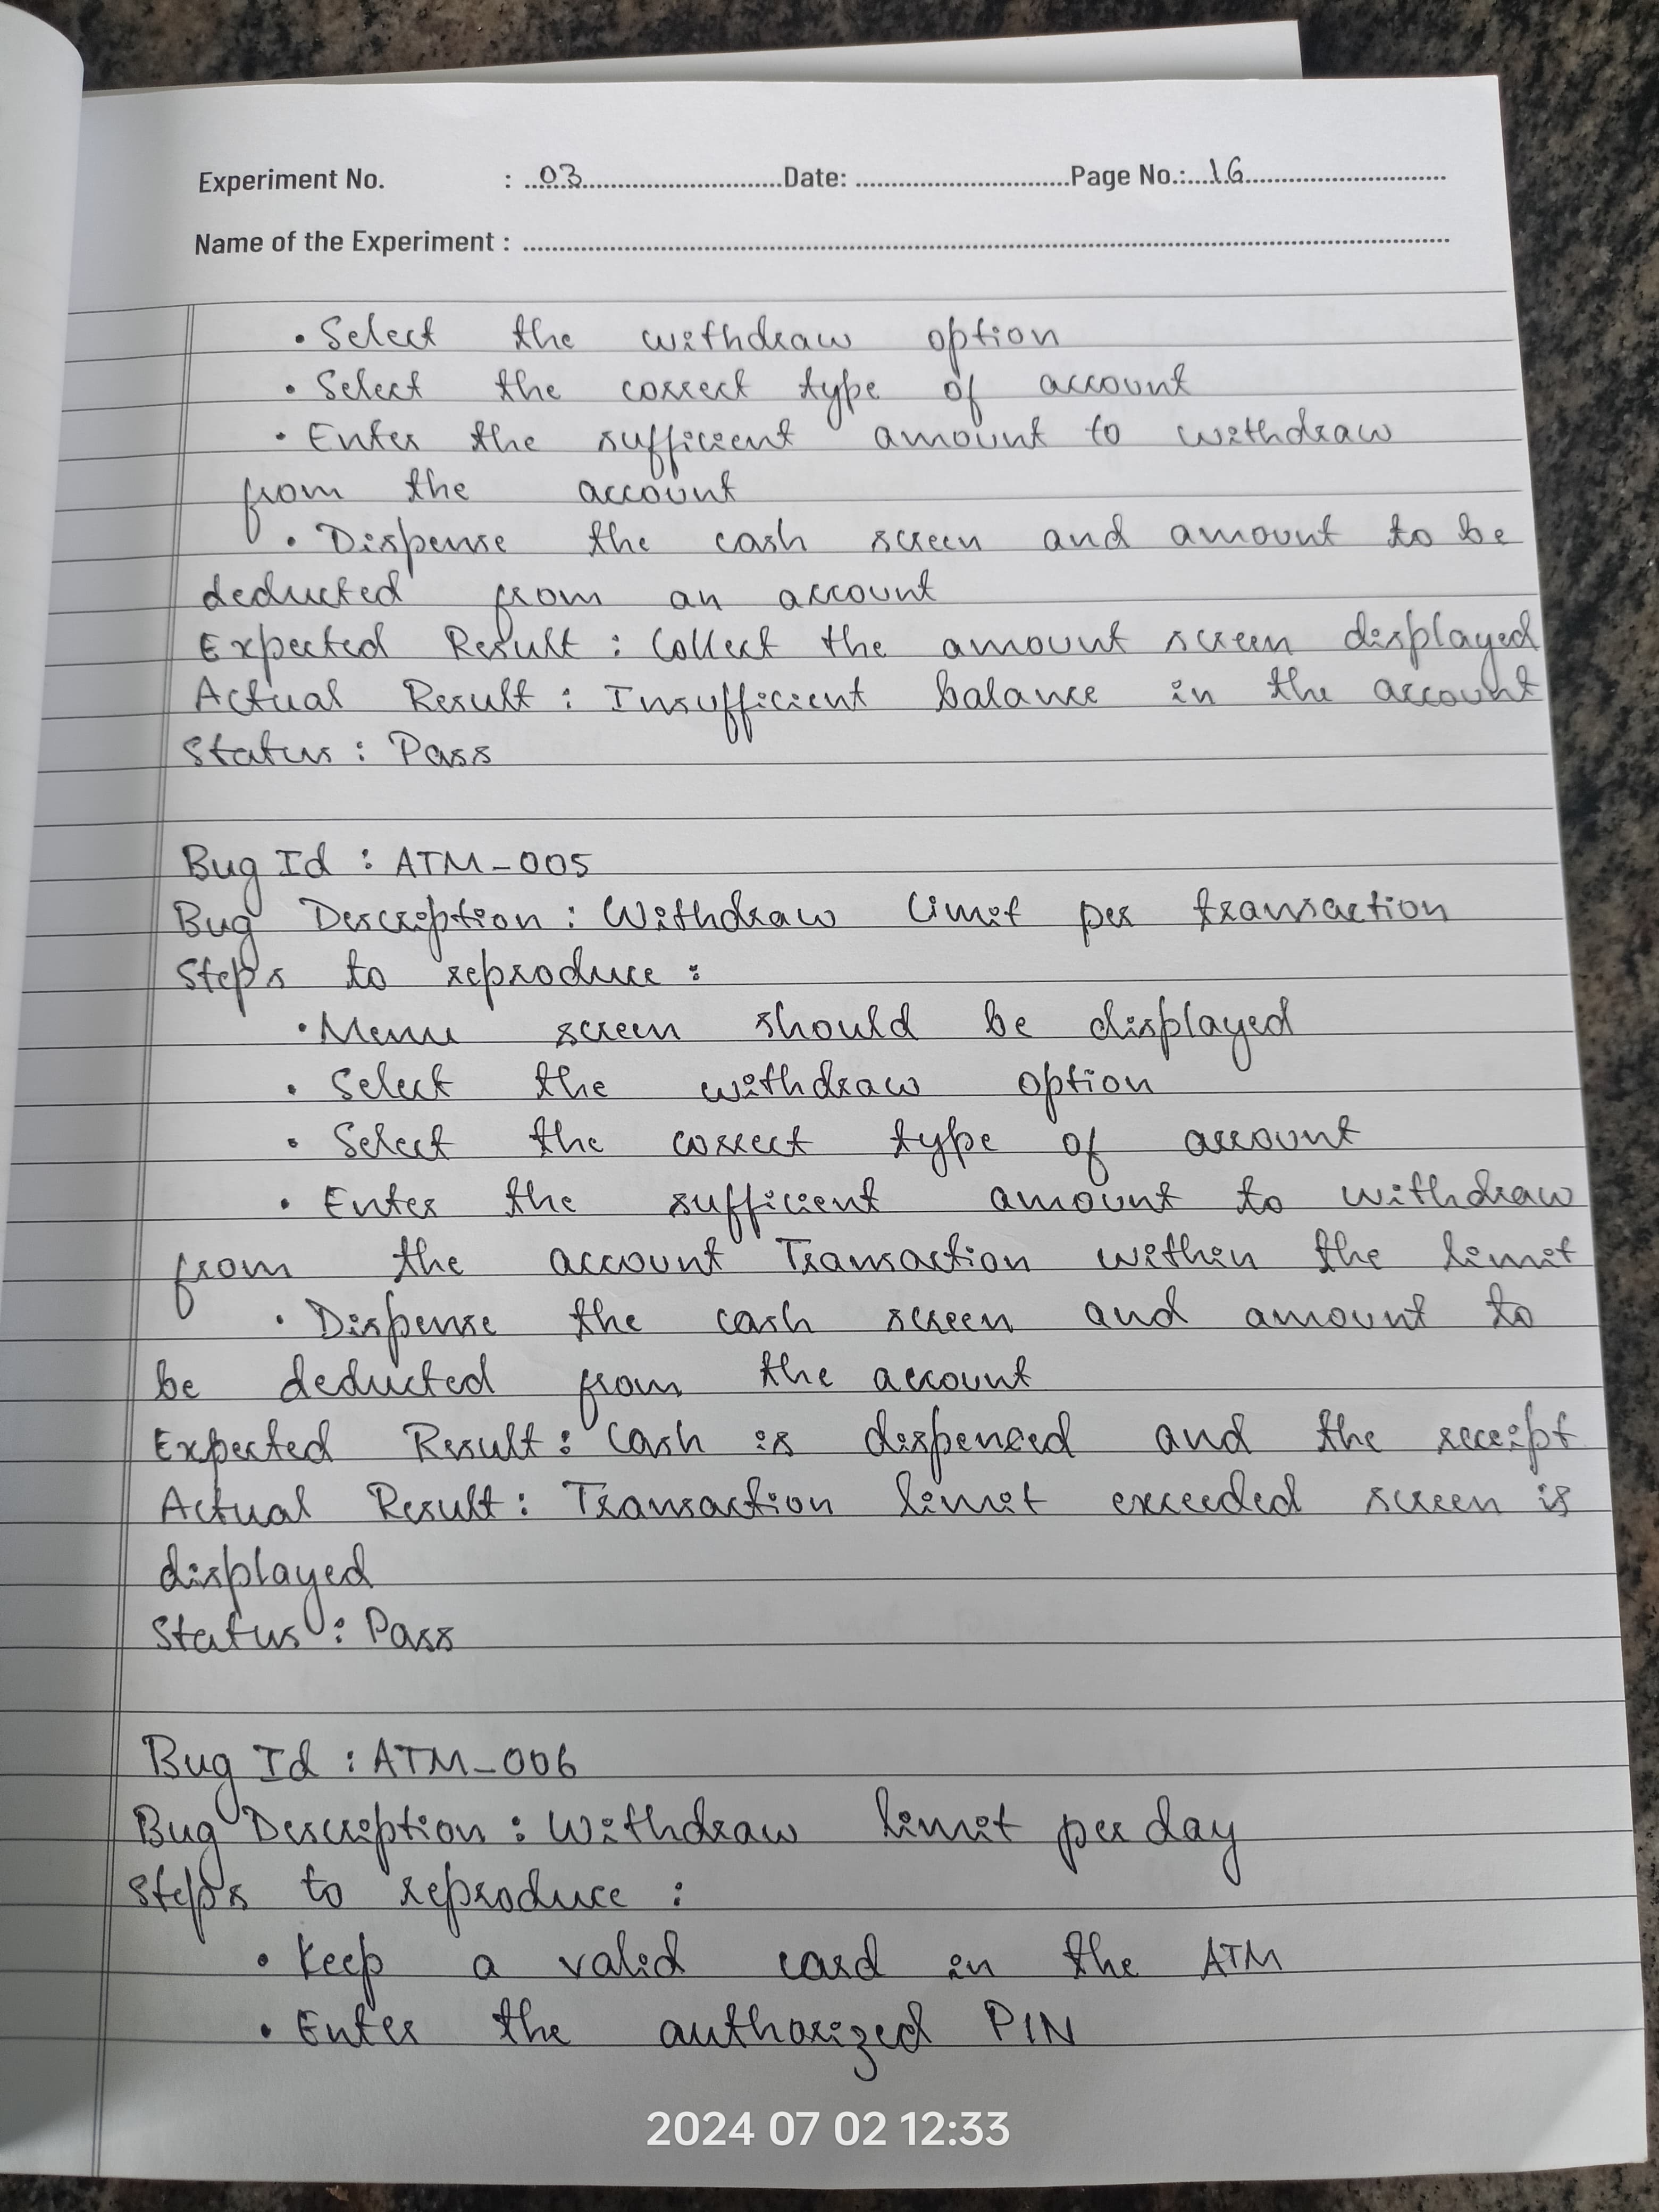 Experiment No. : 03 Date: Page No.: 16
Name of the Experiment :
• Select the withdraw option
• Select the correct type of account
• Enter the sufficient amount to withdraw
from the account
• Dispense the cash screen and amount to be
deducted from an account
Expected Result : Collect the amount screen displayed
Actual Result : Insufficient balance in the account
Status : Pass
Bug Id : ATM_005
Bug Description : Withdraw limit per transaction
Steps to reproduce :
• Menu screen should be displayed
• Select the withdraw option
• Select the correct type of account
• Enter the sufficient amount to withdraw
from the account Transaction within the limit
• Dispense the cash screen and amount to
be deducted from the account
Expected Result : Cash is dispenced and the receipt
Actual Result : Transaction limit exceeded screen is
displayed
Status : Pass
Bug Id : ATM_006
Bug Description : Withdraw limit per day
Steps to reproduce :
• Keep a valid card in the ATM
• Enter the authorized PIN
2024 07 02 12:33